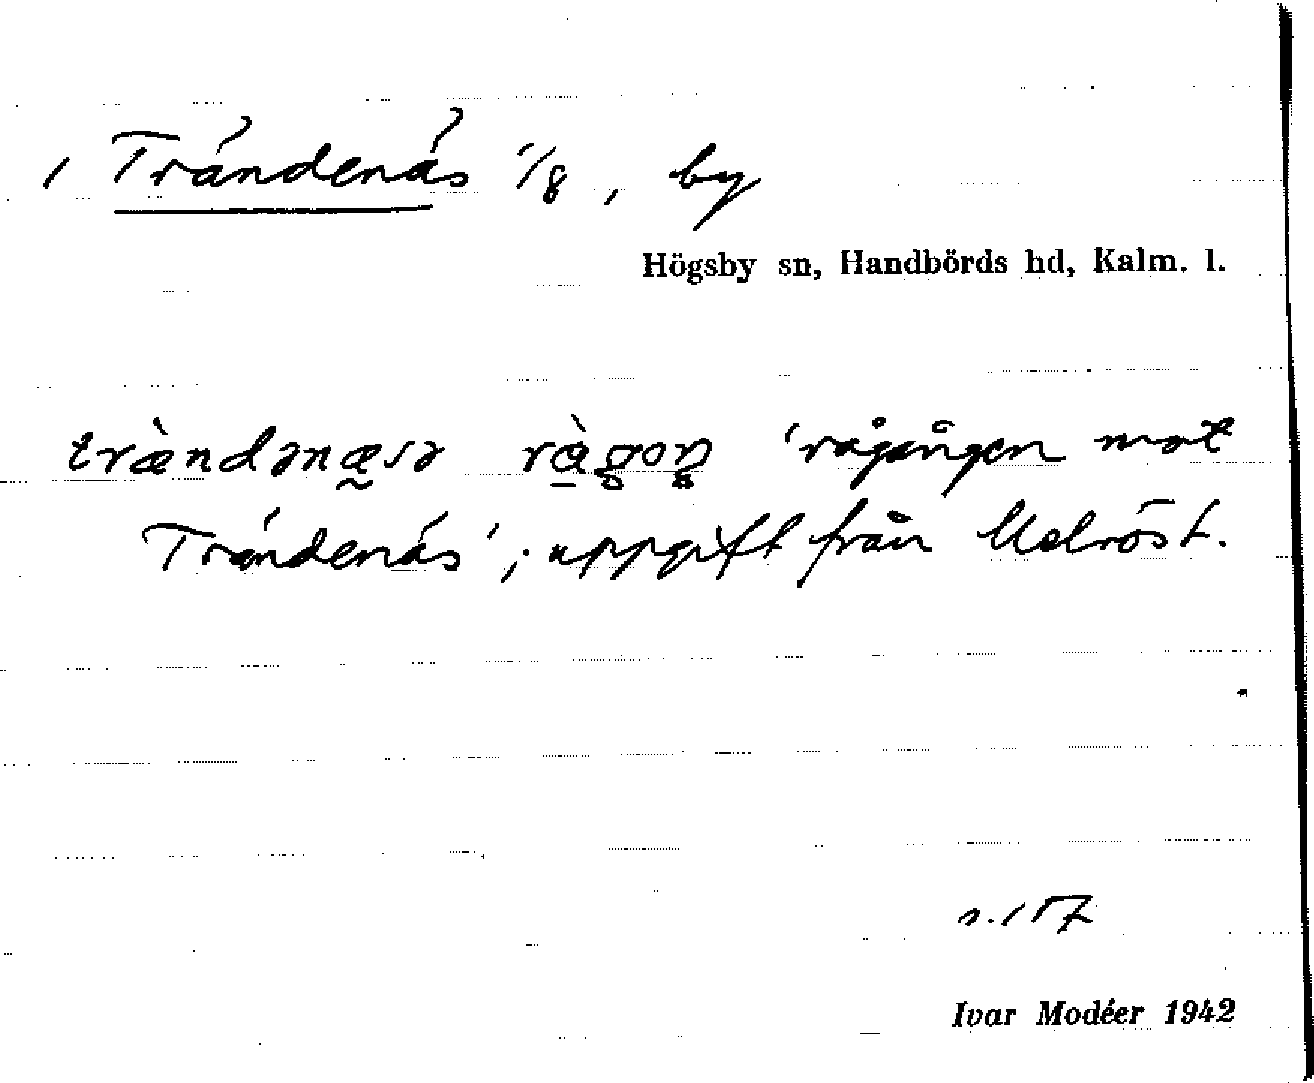 , Trändenäs 1/8, by
Högsby sn, Handbörds hd, Kalm. l.
trændənæsə rågoŋ 'rågången mot
Trändenäs'; uppgift från Uelröst.
s. 157
Ivar Modéer 1942